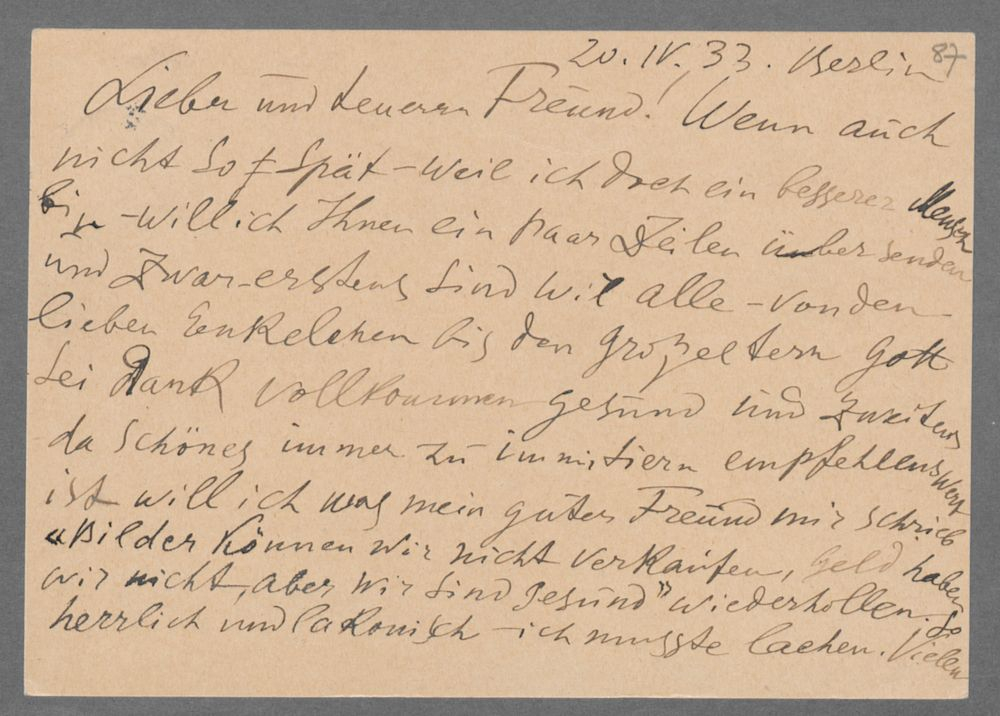 87
20. IV. 33. Berlin
Lieber und teuerer Freund! Wenn auch
nicht so spät – weil ich doch ein besserer Mensch
bin – will ich Ihnen ein paar Zeilen übersenden
und zwar – erstens sind wir alle – von den
lieben Eenkelchen bis den Großeltern Gott
sei Dank vollkommen gesund und zweitens
da schönes immer zu immitiern empfehlenswert
ist will ich was mein guter Freund mir schrieb
«Bilder können wir nicht verkaufen, geld haben
wir nicht, aber wir sind gesund" wiederhollen. So
herrlich und lakonisch – ich musste lachen. Vielen